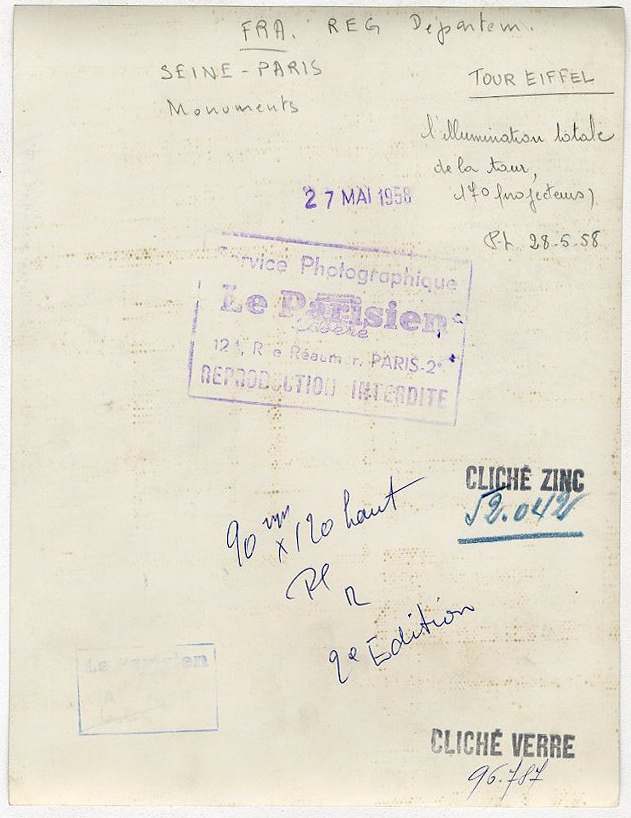 FRA. REG Départem.
SEINE-PARIS
Monuments
TOUR EIFFEL
l'illumination totale
de la tour,
170 projecteurs)
27 MAI 1958
P.L 28-5-58
Service Photographique
Le Parisien
Libéré
12, Rue Réaumur. PARIS-2e
REPRODUCTION INTERDITE
CLICHÉ ZINC
52.042
90 mm x 120 haut
2e Edition
Le Parisien
CLICHÉ VERRE
96.787